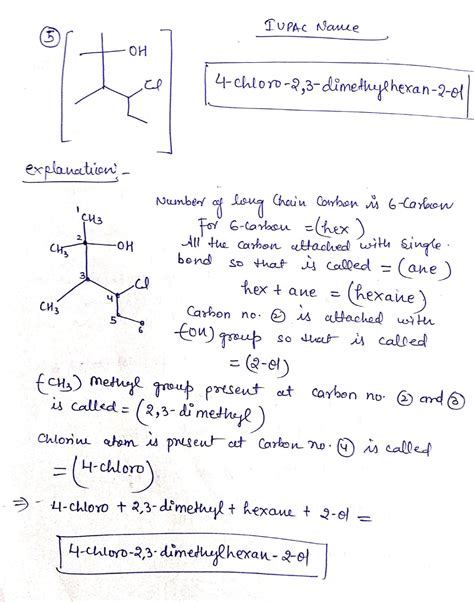 ⑤ IUPAC Name
OH
Cl
4-chloro-2,3-dimethylhexan-2-ol
explanation:-
Number of long chain carbon is 6-carbon
For 6-carbon = (hex)
All the carbon attached with single
bond so that is called = (ane)
hex + ane = (hexane)
Carbon no. ② is attached with
(-OH) group so that is called
= (2-ol)
1
CH3
2
CH3
OH
3
Cl
4
CH3
5
6
(-CH3) Methyl group present at carbon no. ② and ③
is called = (2,3-dimethyl)
Chlorine atom is present at carbon no. ④ is called
= (4-chloro)
⇒ 4-chloro + 2,3-dimethyl + hexane + 2-ol =
4-chloro-2,3-dimethylhexan-2-ol